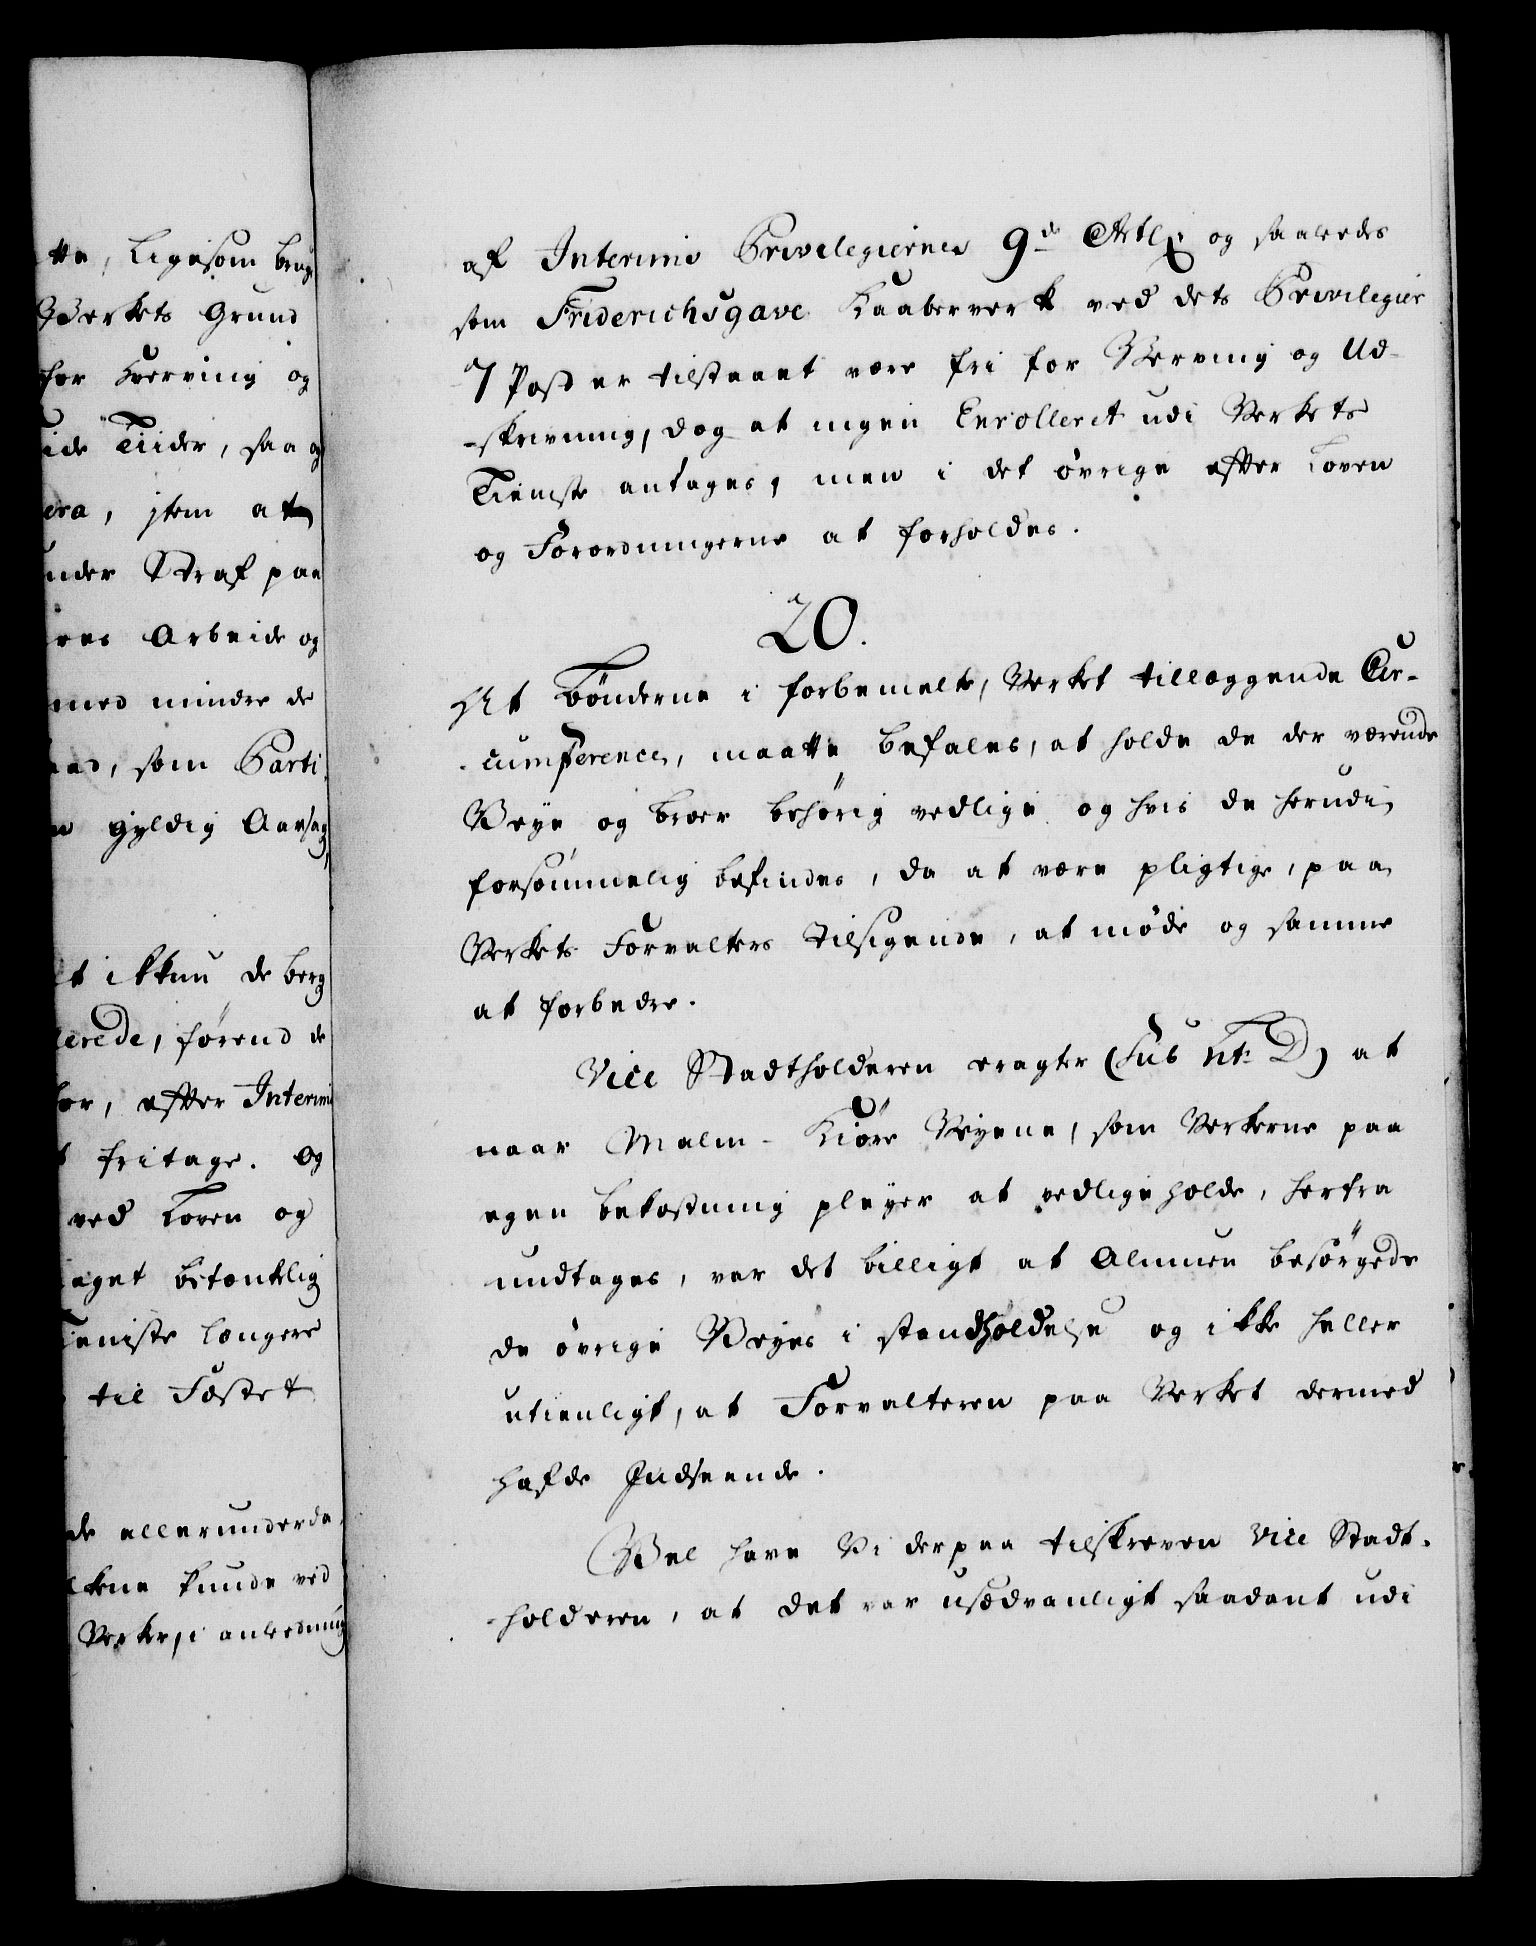 tte, Ligesom brug
Werkets Grund
for Hverving og
ide Tiider, saa og
era, jtem at
under Straf paa
eres Arbeide og
med mindre de
som Parti
gyldig Aarsag,
ikkun de berg
erede, førend de
efter Interims
fritage. Og
ved Loven og
aget betænkelig
ieniste længere
til Fæstet
de allerunderda
kunde ved
Verker, i anledning
af Interims Privilegiernes 9de Artl: og saaledes
som Friderichsgave Kaaberverk ved dets Privilegier
7 Post er tilstaaet være fri for Werving og Ud-
-skrivning, dog at ingen Enrolleret udi Verkets
Tieniste antages, men i det øvrige efter Loven
og Forordningerne at forholdes.
20.
At Bønderne i forbemelte, Verket tillæggende Cir-
-cumference, maatte befales, at holde de der værende
Veye og broer behørig vedlige og hvis de herudi
forsømmelig befindes, da at være pligtige, paa
Verkets Forvalters Tilsigende, at møde og samme
at forbedre.
Vice Stadtholderen eragter (Sub Litr: D) at
naar Malm-Kiøre Veyene, som Verkerne paa
egen bekostning pleyer at vedligeholde, herfra
undtages, var det billigt at Almuen besørgede
de øvrige Veyes i standholdelse og ikke heller
utienligt, at Forvalteren paa Verket dermed
hafde Indseende.
Vel have Vi derpaa tilskreven Vice Stadt-
-holderen, at det var usædvanligt saadant udi